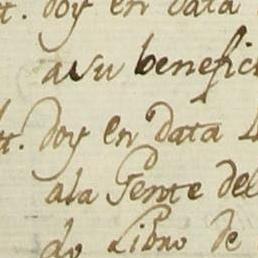 t. doy en data
a su benefic
t. doy en data
a la Gente del
do Libro de